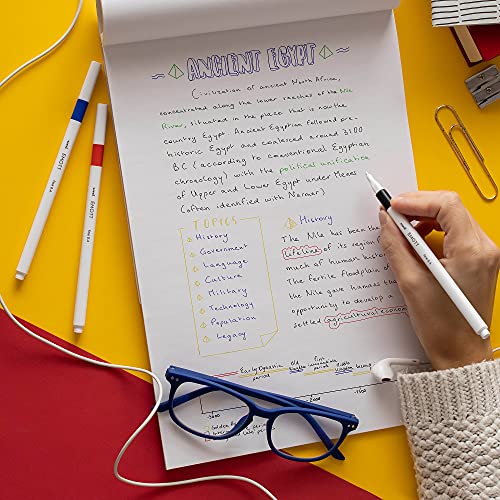 ANCIENT EGYPT
Civilization of ancient North Africa,
concentrated along the lower reaches of the Nile
River, situated in the place that is now the
country Egypt. Ancient Egyptian followed pre-
historic Egypt and coalesced around 3100
BC (according to conventional Egyptian
chronology) with the political unification
of Upper and Lower Egypt under Menes
(often identified with Narmer)
TOPICS
History
Government
Language
Culture
Military
Technology
Population
Legacy
History
The Nile has been the
lifeline of its region
much of human history
The fertile floodplain of
the Nile gave humans the
opportunity to develop a
settled agricultural econom
Early Dynastic
period
Old
kingdom
First
intermediate
period
middle
kingdom
2000
SNOTT
SNOTT
SNOTT